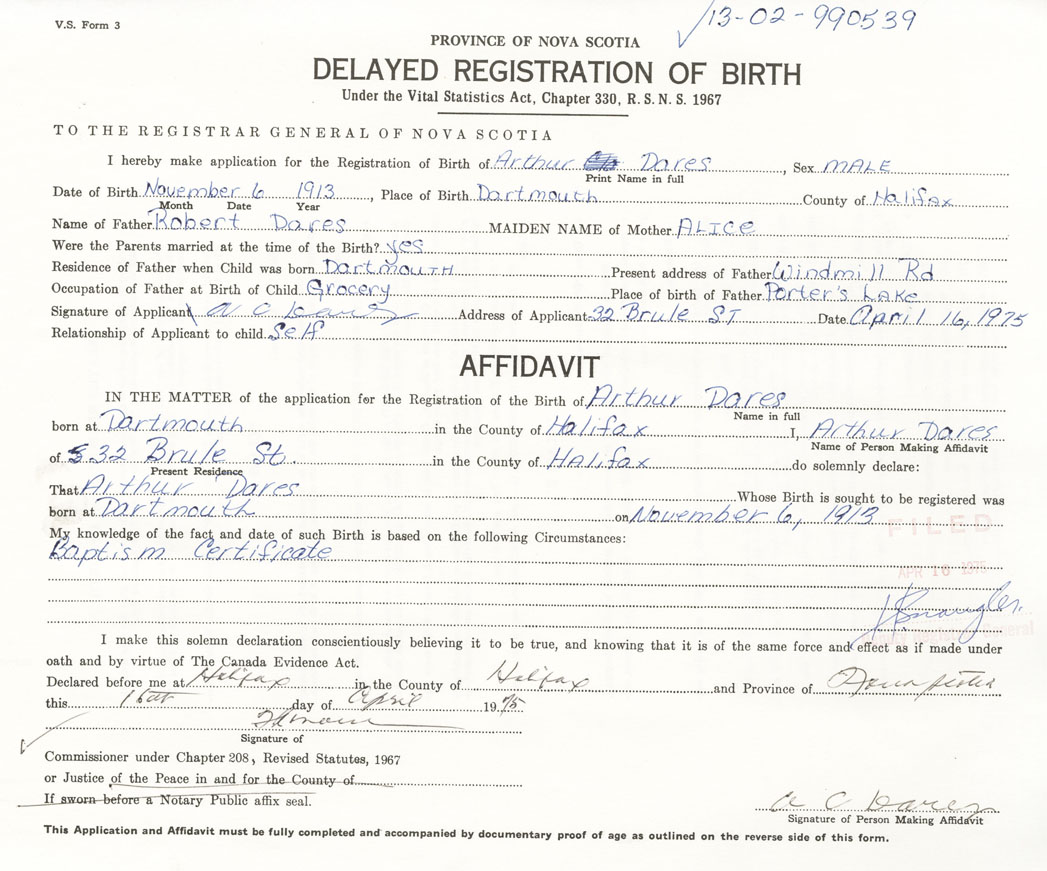 V.S. Form 3
13-02-990539
PROVINCE OF NOVA SCOTIA
DELAYED REGISTRATION OF BIRTH
Under the Vital Statistics Act, Chapter 330, R. S. N. S. 1967
TO THE REGISTRAR GENERAL OF NOVA SCOTIA
I hereby make application for the Registration of Birth of Arthur Dares, Sex MALE
Print Name in full
Date of Birth November 6 1913, Place of Birth Dartmouth County of Halifax
Month Date Year
Name of Father Robert Dares MAIDEN NAME of Mother ALICE
Were the Parents married at the time of the Birth? yes
Residence of Father when Child was born Dartmouth Present address of Father Windmill Rd
Occupation of Father at Birth of Child Grocery Place of birth of Father Porter's Lake
Signature of Applicant A C Dares Address of Applicant 32 Brule ST Date April 16, 1975
Relationship of Applicant to child Self
AFFIDAVIT
IN THE MATTER of the application for the Registration of the Birth of Arthur Dares
Name in full
born at Dartmouth in the County of Halifax I, Arthur Dares
Name of Person Making Affidavit
of 32 Brule St. in the County of Halifax do solemnly declare:
Present Residence
That Arthur Dares Whose Birth is sought to be registered was
born at Dartmouth on November 6, 1913
FILED
My knowledge of the fact and date of such Birth is based on the following Circumstances:
Baptism Certificate
APR 16 1975
I make this solemn declaration conscientiously believing it to be true, and knowing that it is of the same force and effect as if made under
oath and by virtue of The Canada Evidence Act.
Declared before me at Halifax in the County of Halifax and Province of Nova Scotia
this 16th day of April 1975
Signature of
Commissioner under Chapter 208, Revised Statutes, 1967
or Justice of the Peace in and for the County of
If sworn before a Notary Public affix seal.
A C Dares
Signature of Person Making Affidavit
This Application and Affidavit must be fully completed and accompanied by documentary proof of age as outlined on the reverse side of this form.